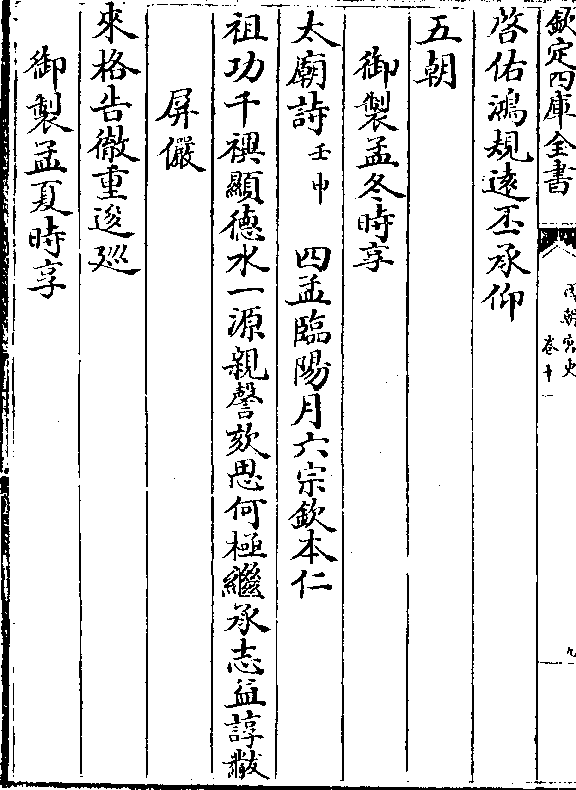 欽定四庫全書
國朝宮史
卷十一
九
啓佑鴻規遠丕承仰
五朝
御製孟冬時享
太廟詩壬申 四孟臨陽月六宗欽本仁
祖功千禩顯德水一源親謦欬思何極繼承志益諄黻
屏儼
來格告徹重逡巡
御製孟夏時享